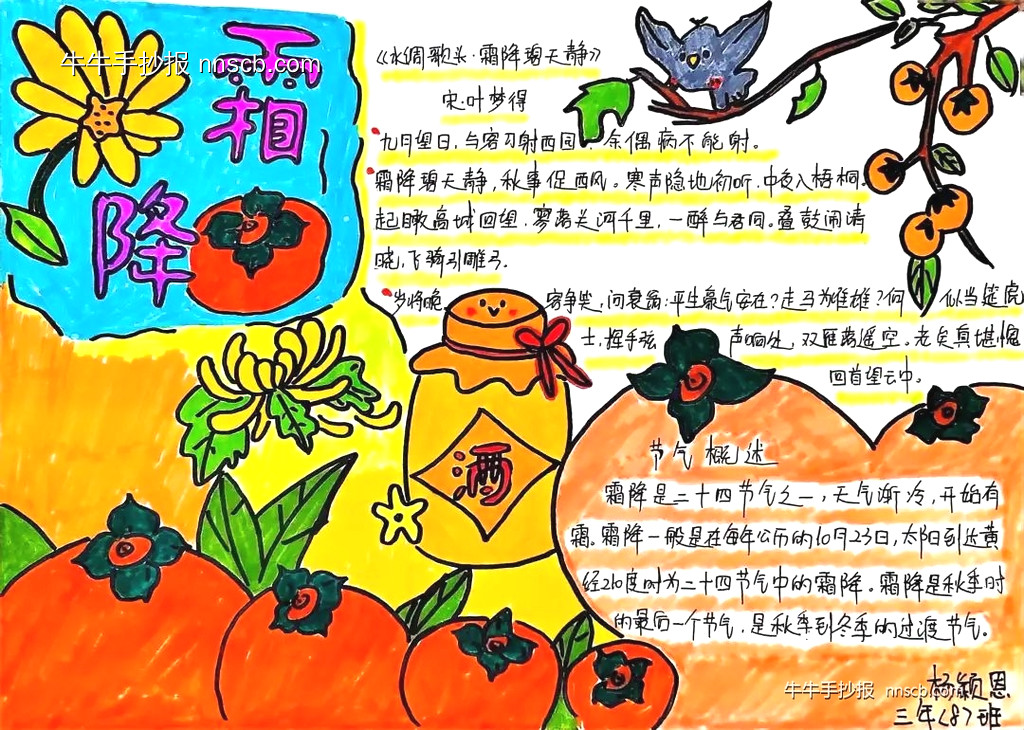 霜降
牛牛手抄报 nnscb.com
《水调歌头·霜降碧天静》
宋·叶梦得
九月望日,与客习射西园,余偶病不能射。
霜降碧天静,秋事促西风。寒声隐地初听,中夜入梧桐。
起瞰高城回望,寥落关河千里,一醉与君同。叠鼓闹清
晓,飞骑引雕弓。
岁将晚,客争笑,问衰翁:平生豪气安在?走马为谁雄?何似当筵虎
士,挥手弦声响处,双雁落遥空。老矣真堪惜
回首望云中。
酒
节气概述
霜降是二十四节气之一,天气渐冷,开始有
霜。霜降一般是在每年公历的10月23日,太阳到达黄
经210度时为二十四节气中的霜降。霜降是秋季时
的最后一个节气,是秋季到冬季的过渡节气。
牛牛手抄报 nnscb.com
杨颖恩
三年(8)班